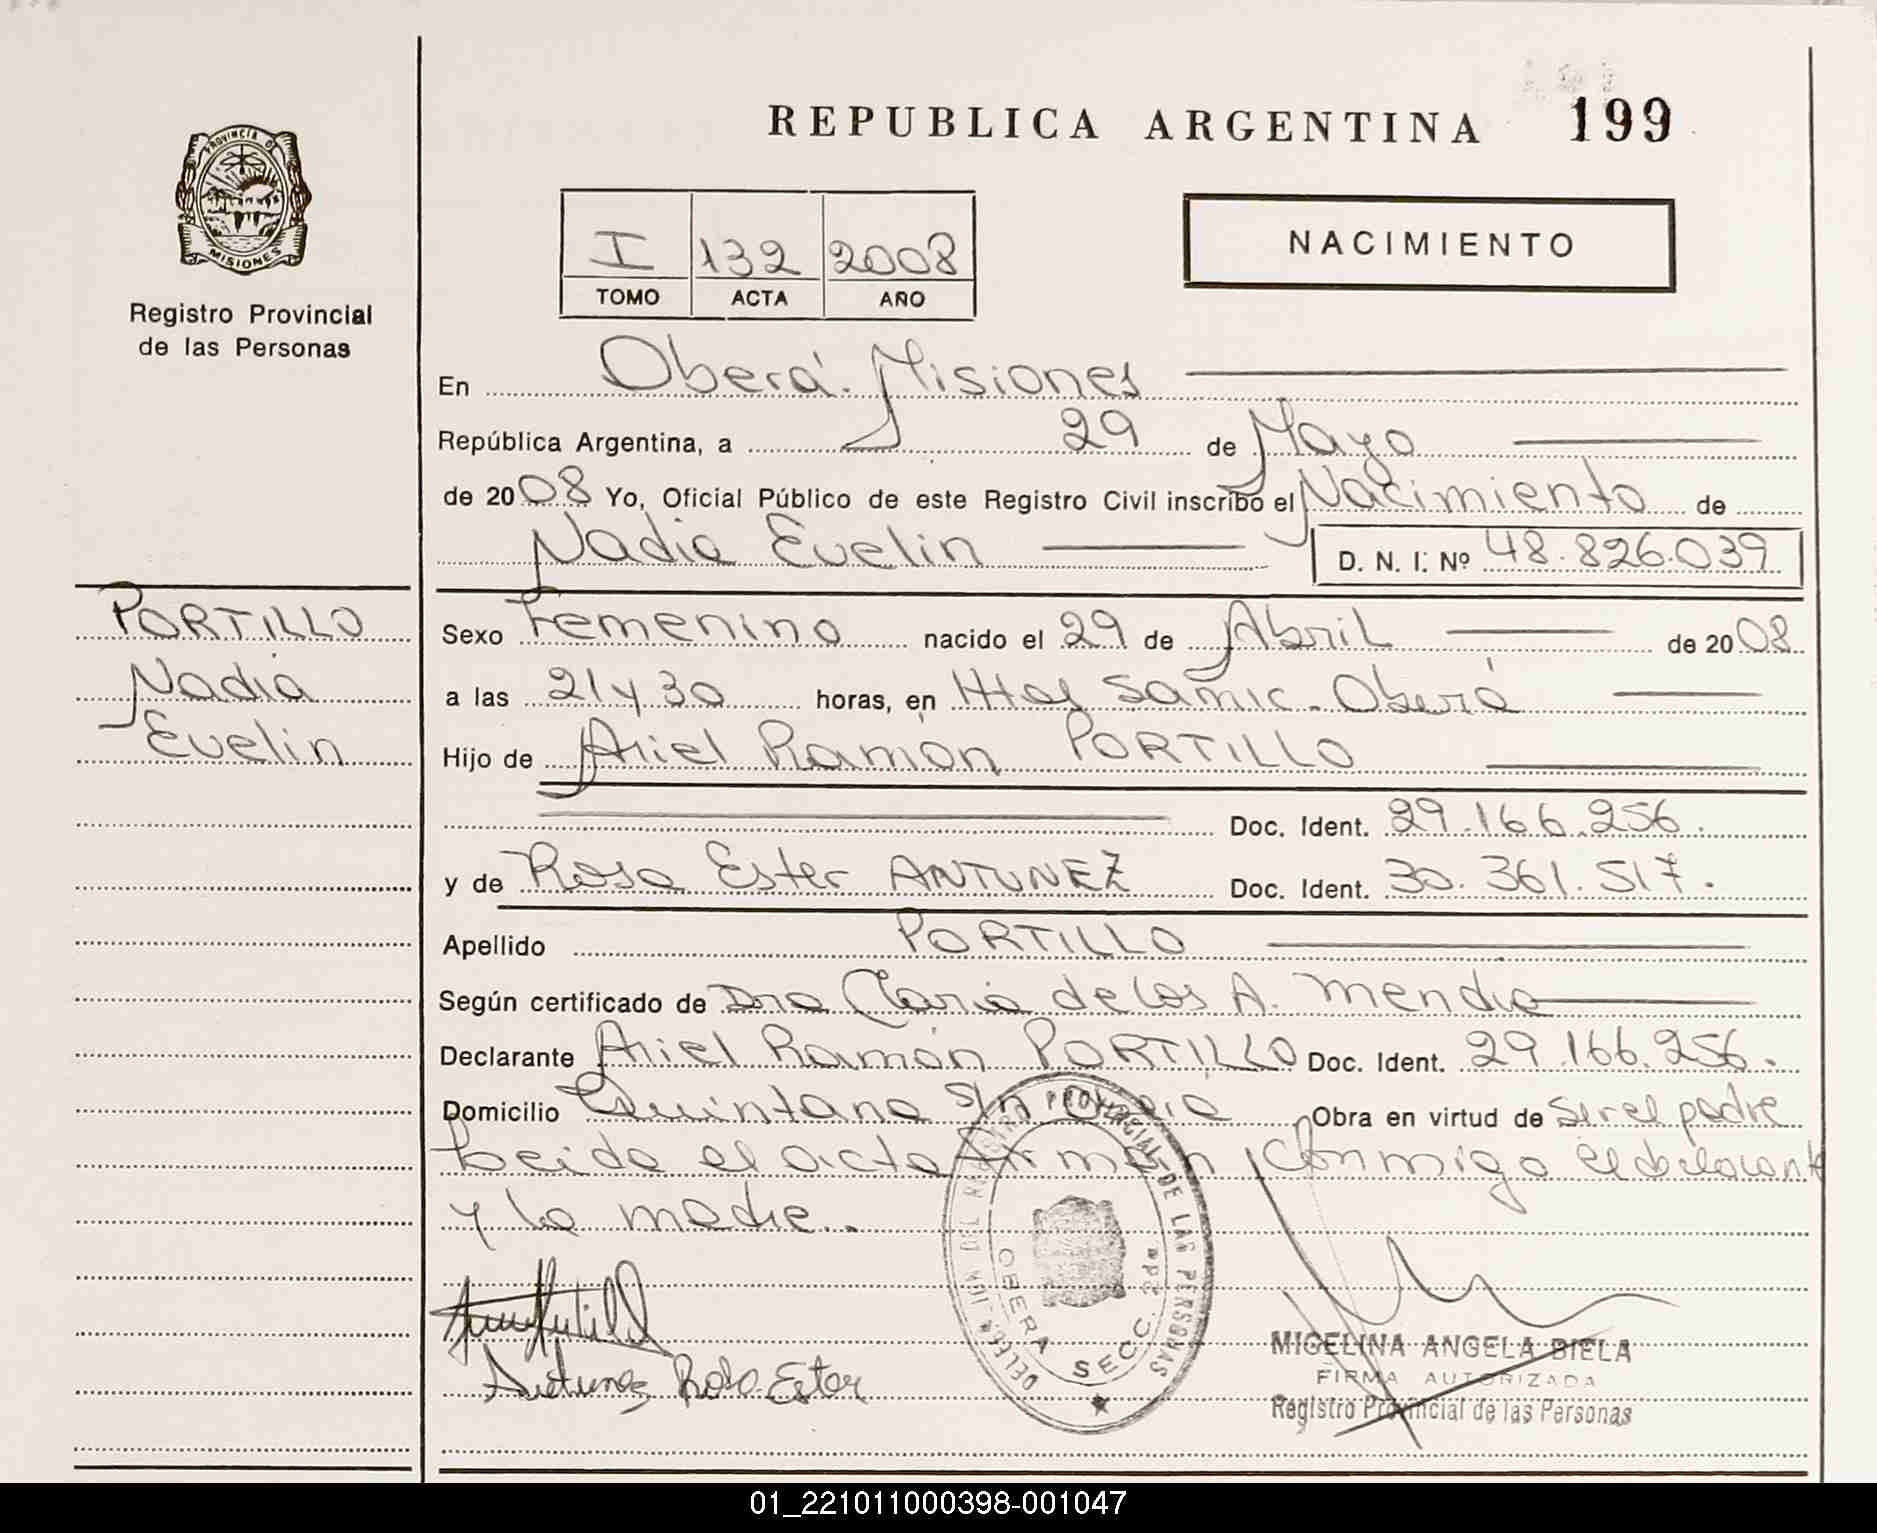 REPUBLICA ARGENTINA 199
PROVINCIA D
MISIONES
Registro Provincial
de las Personas
I 132 2008
TOMO ACTA AÑO
NACIMIENTO
En Oberá. Misiones
República Argentina, a 29 de Mayo
de 2008 Yo, Oficial Público de este Registro Civil inscribo el Nacimiento de
Nadia Evelin D. N. I. Nº 48.826.039
PORTILLO
Nadia
Evelin
Sexo Femenino nacido el 29 de Abril de 2008
a las 21 y 30 horas, en Htal Samic. Oberá
Hijo de Ariel Ramon PORTILLO
Doc. Ident. 29.166.256.
y de Rosa Ester ANTUNEZ Doc. Ident. 30.361.517.
Apellido PORTILLO
Según certificado de Dra Maria de los A. Mendie
Declarante Ariel Ramón PORTILLO Doc. Ident. 29.166.256.
Domicilio Quintana s/n Oberá Obra en virtud de ser el padre
Leida el acta firman conmigo el declarante
y la madre..
Antunez Rosa Ester
DELEGACION DEL REGISTRO PROVINCIAL DE LAS PERSONAS
OBERA SECC. 2da
MIGELINA ANGELA BIELA
FIRMA AUTORIZADA
Registro Provincial de las Personas
01_221011000398-001047